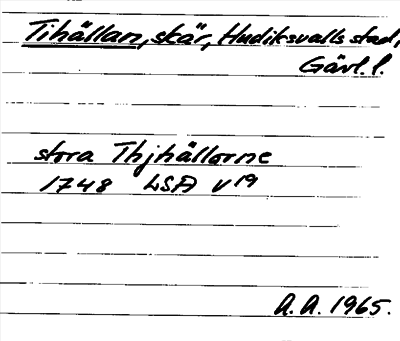 Tihällan, skär, Hudiksvalls stad,
Gävl. l.
stora Thjhällorne
1748 LSA V19
A. A. 1965.